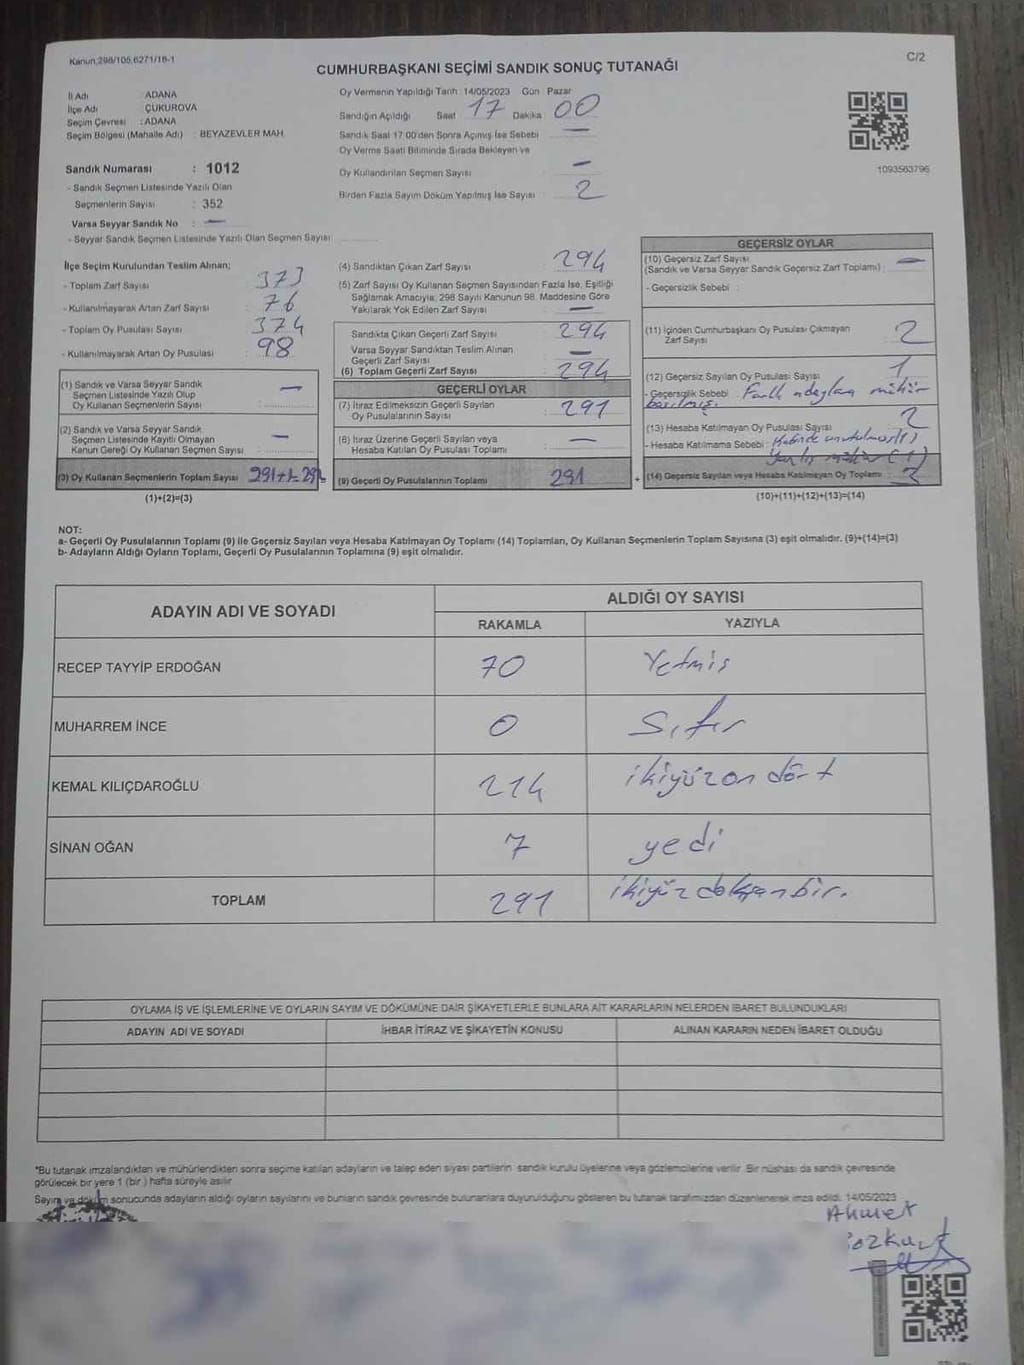 Kanun,298/105,6271/16-1
C/2
CUMHURBAŞKANI SEÇİMİ SANDIK SONUÇ TUTANAĞI
İl Adı : ADANA
İlçe Adı : ÇUKUROVA
Seçim Çevresi : ADANA
Seçim Bölgesi (Mahalle Adı) : BEYAZEVLER MAH.
Sandık Numarası : 1012
- Sandık Seçmen Listesinde Yazılı Olan
Seçmenlerin Sayısı : 352
Varsa Seyyar Sandık No : —
- Seyyar Sandık Seçmen Listesinde Yazılı Olan Seçmen Sayısı
Oy Vermenin Yapıldığı Tarih : 14/05/2023 Gün : Pazar
Sandığın Açıldığı Saat 17 Dakika : 00
Sandık Saat 17:00'den Sonra Açımış İse Sebebi : —
Oy Verme Saati Bitiminde Sırada Bekleyen ve
Oy Kullandırılan Seçmen Sayısı : —
Birden Fazla Sayım Döküm Yapılmış İse Sayısı : 2
1093563796
İlçe Seçim Kurulundan Teslim Alınan;
- Toplam Zarf Sayısı : 373
- Kullanılmayarak Artan Zarf Sayısı : 76
- Toplam Oy Pusulası Sayısı : 374
- Kullanılmayarak Artan Oy Pusulası : 98
(1) Sandık ve Varsa Seyyar Sandık
Seçmen Listesinde Yazılı Olup
Oy Kullanan Seçmenlerin Sayısı : —
(2) Sandık ve Varsa Seyyar Sandık
Seçmen Listesinde Kayıtlı Olmayan
Kanun Gereği Oy Kullanan Seçmen Sayısı : —
(3) Oy Kullanan Seçmenlerin Toplam Sayısı
(1)+(2)=(3)
(4) Sandıktan Çıkan Zarf Sayısı : 294
(5) Zarf Sayısı Oy Kullanan Seçmen Sayısından Fazla İse, Eşitliği
Sağlamak Amacıyla, 298 Sayılı Kanunun 98. Maddesine Göre
Yakılarak Yok Edilen Zarf Sayısı : —
Sandıkta Çıkan Geçerli Zarf Sayısı : 294
Varsa Seyyar Sandıktan Teslim Alınan
Geçerli Zarf Sayısı : —
(6) Toplam Geçerli Zarf Sayısı : 294
GEÇERLİ OYLAR
(7) İtiraz Edilmeksizin Geçerli Sayılan
Oy Pusulalarının Sayısı : 291
(8) İtiraz Üzerine Geçerli Sayılan veya
Hesaba Katılan Oy Pusulası Toplamı : —
(9) Geçerli Oy Pusulalarının Toplamı : 291
GEÇERSİZ OYLAR
(10) Geçersiz Zarf Sayısı
(Sandık ve Varsa Seyyar Sandık Geçersiz Zarf Toplamı) : —
- Geçersizlik Sebebi :
(11) İçinden Cumhurbaşkanı Oy Pusulası Çıkmayan
Zarf Sayısı : 2
(12) Geçersiz Sayılan Oy Pusulası Sayısı : 1
- Geçersizlik Sebebi : Farklı adaylara mühür
basılmış.
(13) Hesaba Katılmayan Oy Pusulası Sayısı : 2
- Hesaba Katılmama Sebebi : Kabinde unutulmuş(1)
(14) Geçersiz Sayılan veya Hesaba Katılmayan Oy Toplamı :
(10)+(11)+(12)+(13)=(14)
NOT:
a- Geçerli Oy Pusulalarının Toplamı (9) ile Geçersiz Sayılan veya Hesaba Katılmayan Oy Toplamı (14) Toplamları, Oy Kullanan Seçmenlerin Toplam Sayısına (3) eşit olmalıdır. (9)+(14)=(3)
b- Adayların Aldığı Oyların Toplamı, Geçerli Oy Pusulalarının Toplamına (9) eşit olmalıdır.
ADAYIN ADI VE SOYADI
ALDIĞI OY SAYISI
RAKAMLA YAZIYLA
RECEP TAYYİP ERDOĞAN 70 Yetmiş
MUHARREM İNCE 0 Sıfır
KEMAL KILIÇDAROĞLU 214 ikiyüzon dört
SİNAN OĞAN 7 yedi
TOPLAM 291 ikiyüz doksanbir.
OYLAMA İŞ VE İŞLEMLERİNE VE OYLARIN SAYIM VE DÖKÜMÜNE DAİR ŞİKAYETLERLE BUNLARA AİT KARARLARIN NELERDEN İBARET BULUNDUKLARI
ADAYIN ADI VE SOYADI İHBAR İTİRAZ VE ŞİKAYETİN KONUSU ALINAN KARARIN NEDEN İBARET OLDUĞU
*Bu tutanak imzalandıktan ve mühürlendikten sonra seçime katılan adayların ve talep eden siyasi partilerin sandık kurulu üyelerine veya gözlemcilerine verilir. Bir nüshası da sandık çevresinde
görülecek bir yere 1 (bir) hafta süreyle asılır.
Sayım ve döküm sonucunda adayların aldığı oyların sayılarını ve bunların sandık çevresinde bulunanlara duyurulduğunu gösteren bu tutanak tarafımızdan düzenlenerek imza edildi. 14/05/2023
Ahmet
Bozkurt